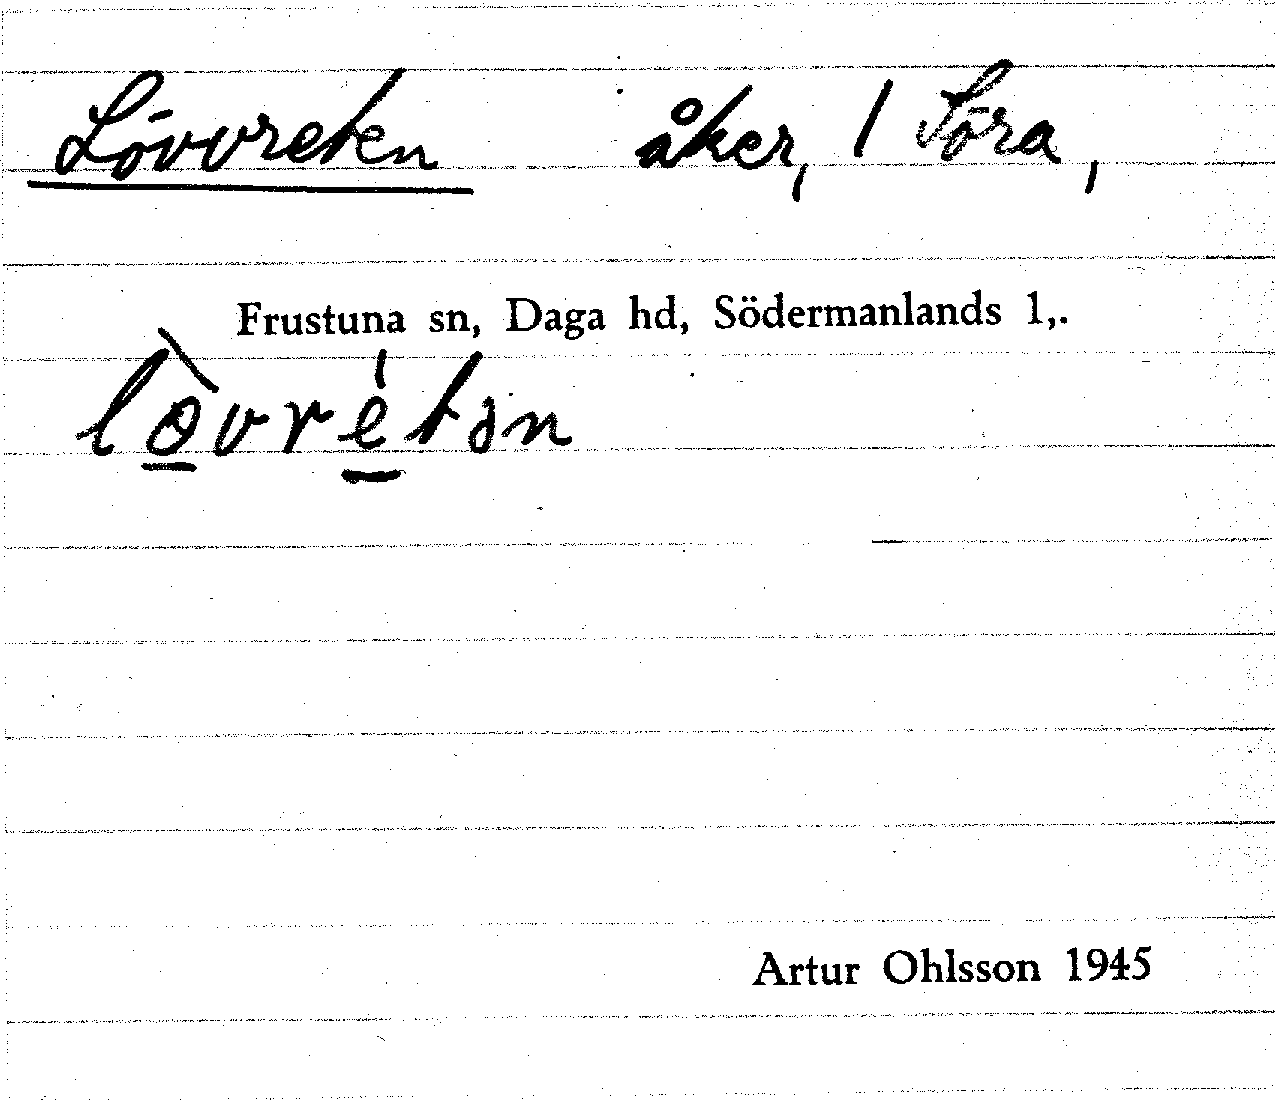 Lövvreten åker, 1 Söra,
Frustuna sn, Daga hd, Södermanlands l,.
lø̀vrétən
Artur Ohlsson 1945